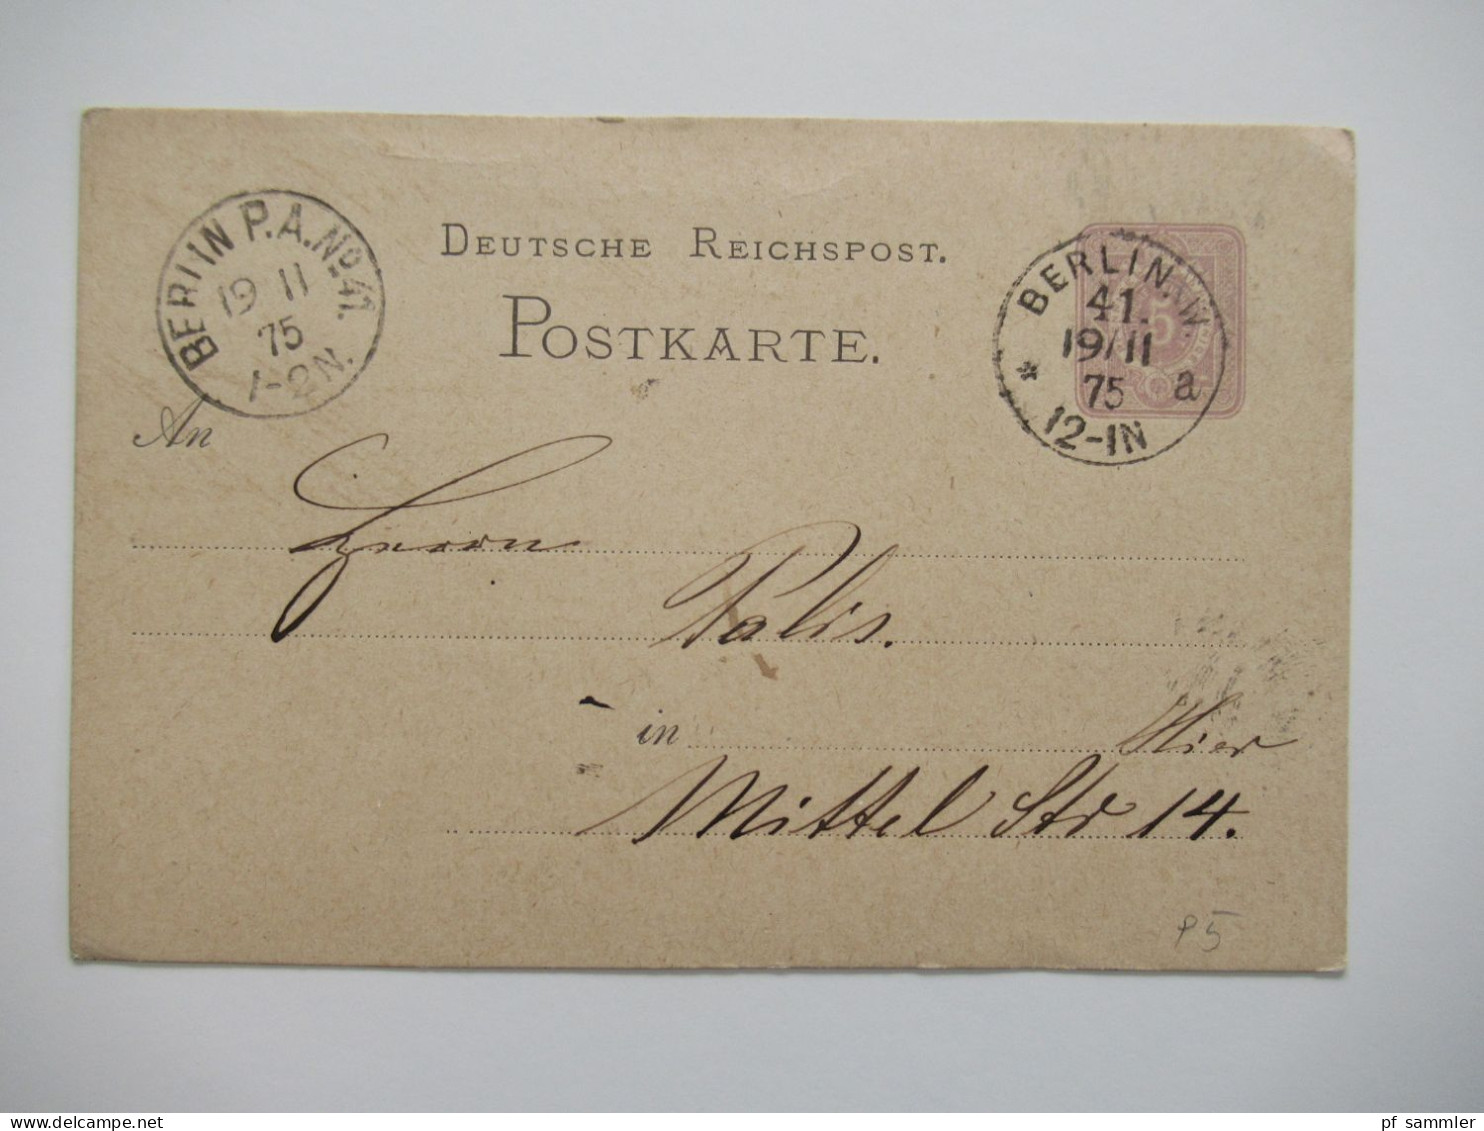 DEUTSCHE REICHSPOST.
POSTKARTE.
BERLIN P.A. No. 41.
19 11
75
1-2N.
BERLIN.W.
41.
19/11
75 a
* 12-1N
5
An
Herrn
Palis.
in Hier
Mittel Str 14.
P5
www.delcampe.net
pf_sammler